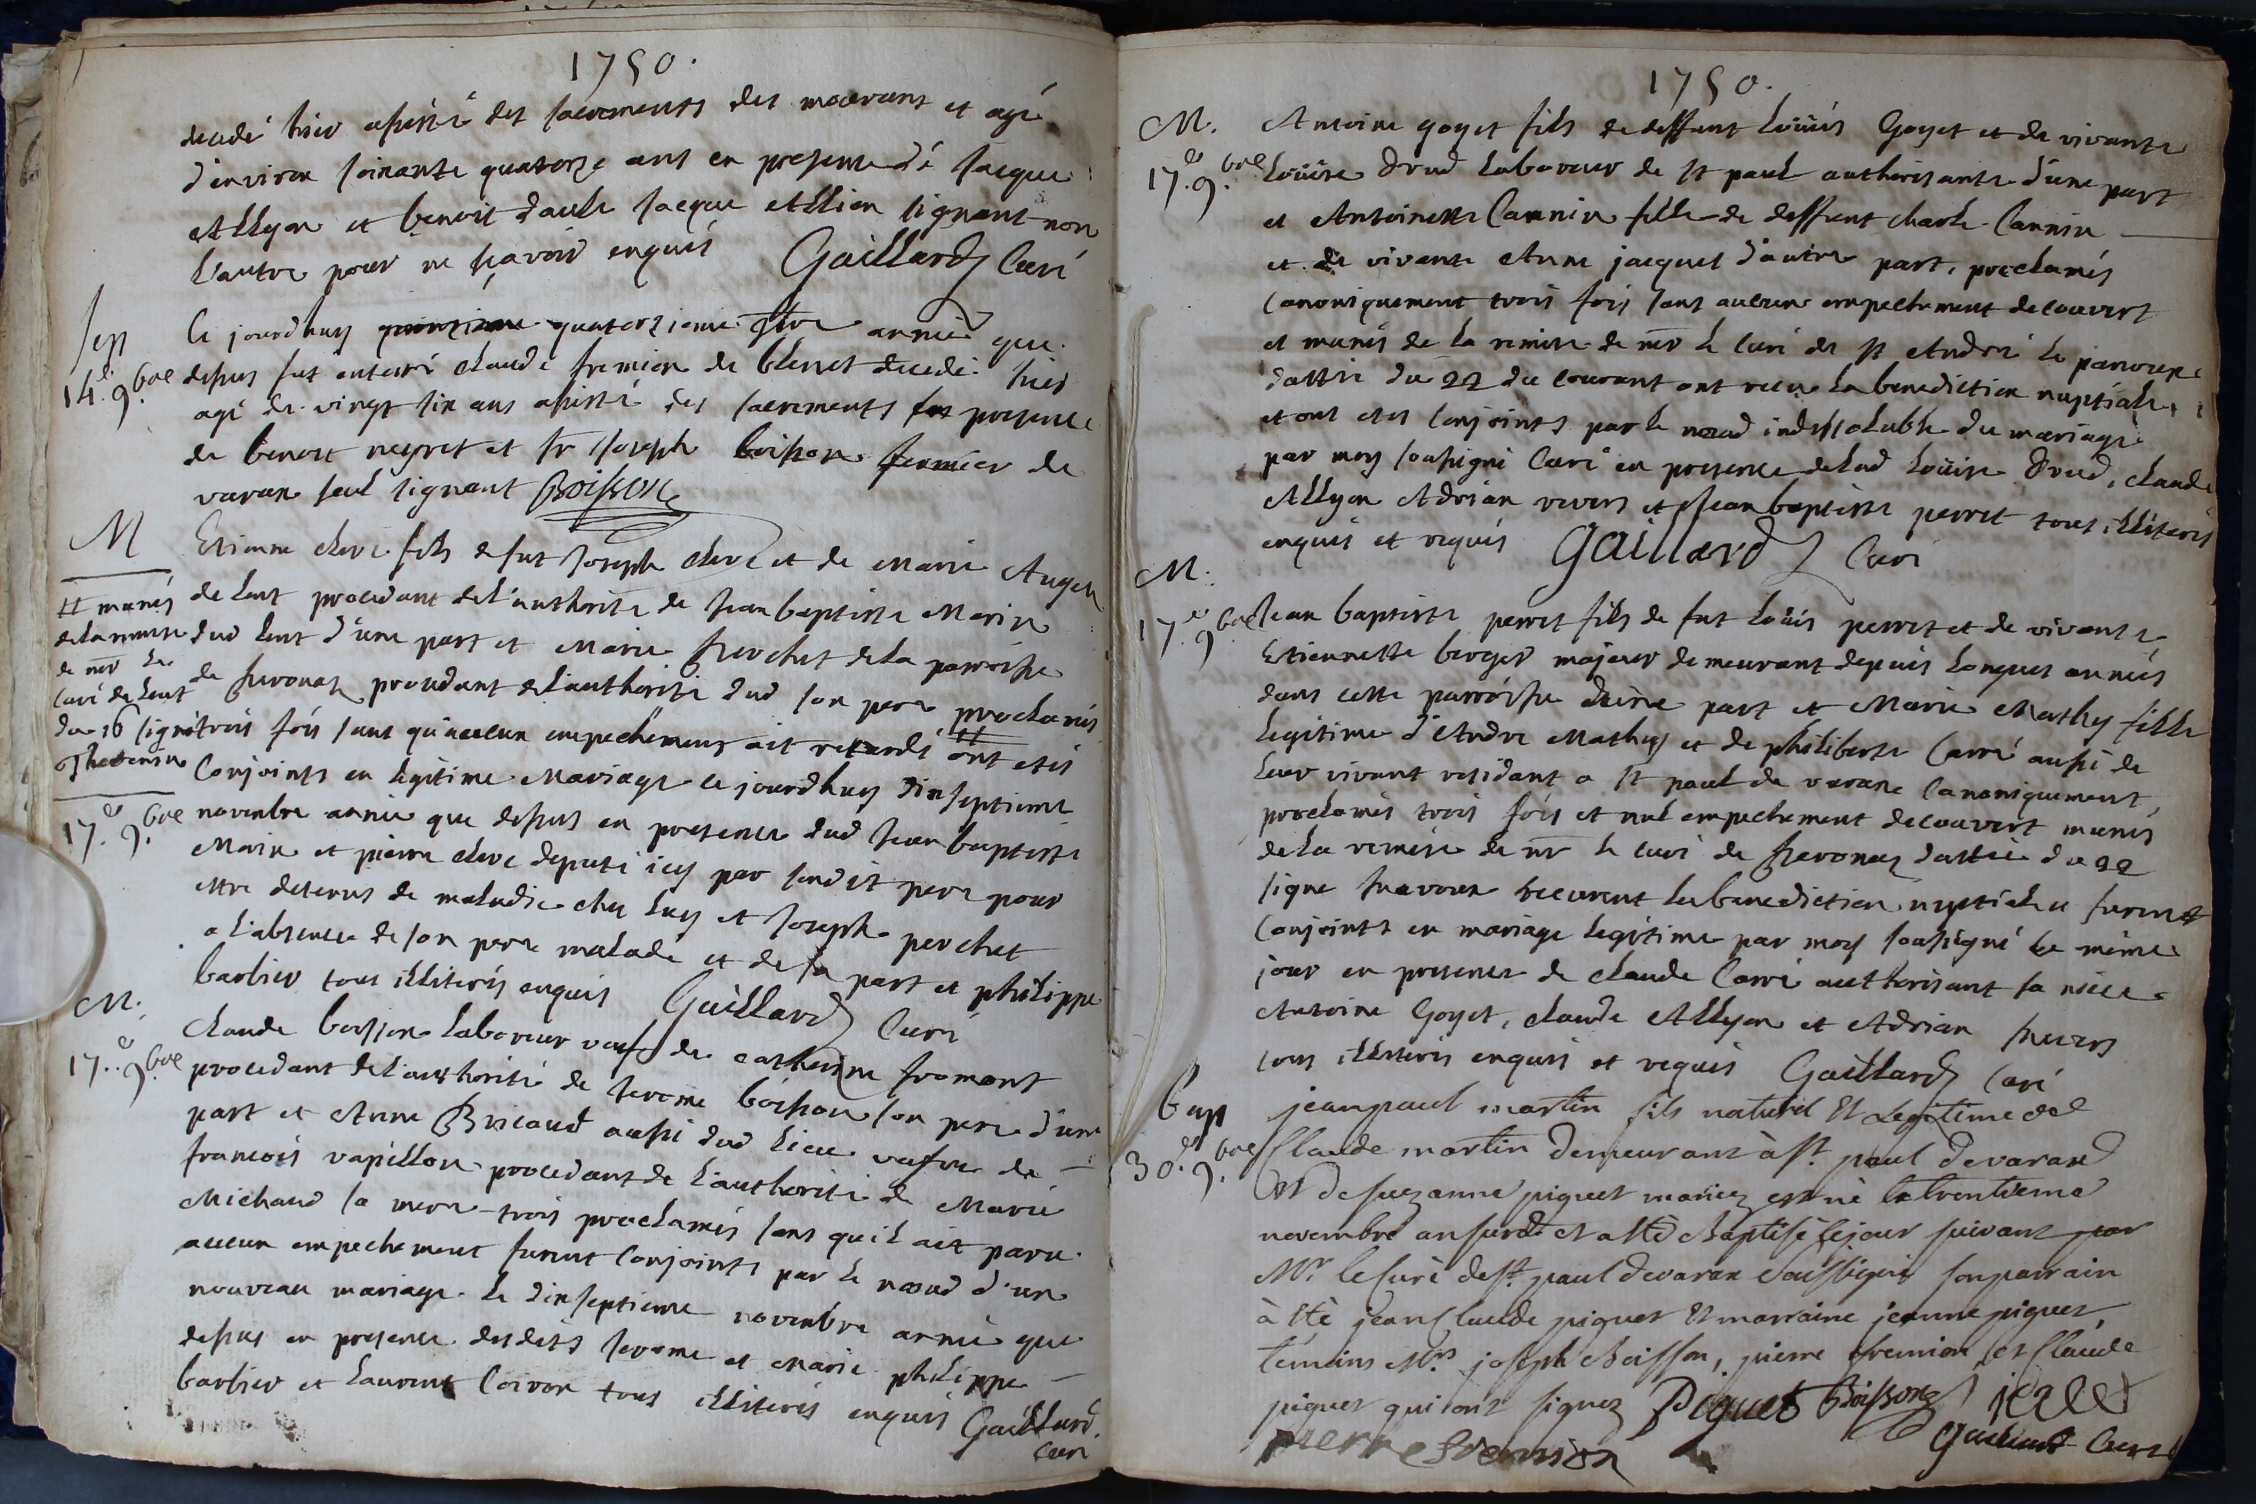 1750.
decedé hier assisté des sacrements des mourans et agé
d'environ soixante quatorze ans en presence dé Jacque
Allyon et benoit Jacque Allion signant non
l'autre pour ne sçavoir enquis Gaillard Curé
Sep
14.e 9.bre
Ce jourdhuy quatorzieme 9bre année que
dessus fut enterré Claude fremion de blenet decedé hier
agé de vingt six ans assisté des sacrements presence
de benoit negret et Sr Joseph boisson fermier de
varax seul signant Boisson
M
Etienne clerc fils de fut Joseph clerc et de Marie Auger
de Lent procedant de l'authorité de Jean baptiste Morin
dud Lent d'une part et Marie perchet de la parroisse
de Servonas procedant de l'authorité dud son pere proclamés
trois fois sans qu'aucun empechement ait retardé ont etés
Conjoints en legitime Mariage ce jourdhuy dixseptieme
novembre année que dessus en presence dud Jean baptiste
Morin et pierre clerc deputé icy par sondit pere pour
etre detenus de maladie chez luy et Joseph perchet
a l'absence de son pere malade et de sa part et philippe
barbier tous illiterés enquis Gaillard Curé
# munis
de la remise
de mr le
Curé de Lent
du 16 signé
Thevenin
17.e 9.bre
M.
17.e 9.bre
Claude boisson laboreur veuf de catherine fromont
procedant de l'authorité de Jerome boisson son pere d'une
part et Anne Bricaud aussi dud lieu veufve de
francois vapillon procedant de l'authorité de Marie
Michaud sa mere trois proclamés sans qu'il ait paru
aucun empechement furent Conjoints par le nœud d'un
nouveau mariage le dixseptieme novembre année que
dessus en presence desdits Jerome et Marie philippe
barbier et Laurent Coiron tous illiterés enquis Gaillard
Curé
1750.
M.
17.e 9.bre
Antoine goyet fils de deffunt Loüis Goyet et de vivante
Loüise Drud laboreur de St paul authorisante d'une part
et Antoinette Cannin fille de deffunt charle Cannin
et de vivante Anne jacquet d'autre part, proclamés
Canoniquement trois fois sans aucun empechement decouvert
et munis de la remise de mr le Curé de St André le panoux
dattée du 22 du courant ont receu la benediction nuptiale
et ont etes Conjoints par le nœud indissoluble du mariage
par moy soussigné Curé en presence de lad Loüise Drud, claude
Allyon Adrian vivers et Jean baptiste perret tous illiterés
enquis et requis Gaillard Curé
M.
17.e 9.bre
Jean baptiste perret fils de fut Loüis perret et de vivante
Etiennette berger majeur demeurant depuis longues années
dans cette parroisse d'une part et Marie Mathy fille
legitime d'Andre Mathy et de philiberte Carré aussi de
leur vivant residant a St paul de varax Canoniquement
proclamés trois fois et nul empechement decouvert munis
de la remise de mr le curé de Servonas dattée du 22
signe receurent la benediction nuptiale et furent
Conjoints en mariage legitime par moy soussigné le même
jour en presence de claude Carré authorisant sa niece
Antoine Goyet, claude Allyon et Adrian
tous illiterés enquis et requis Gaillard Curé
Bap
30.e 9.bre
jean paul martin fils naturel Et Legitime de
Claude martin demeurant à St. paul devarax
Et de suzanne piquet mariez est né le trentieme
novembre an surdt. et a été Baptisé le jour suivant par
Mr. le Curé de St. paul devarax soussigné son parrain
à été jean Claude piquet Et marraine jeanne piquet,
témoins Mrs. joseph Boisson, pierre fremion, et Claude
piquet qui ont signez Piquet Boisson
pierre fremion Gaillard Curé